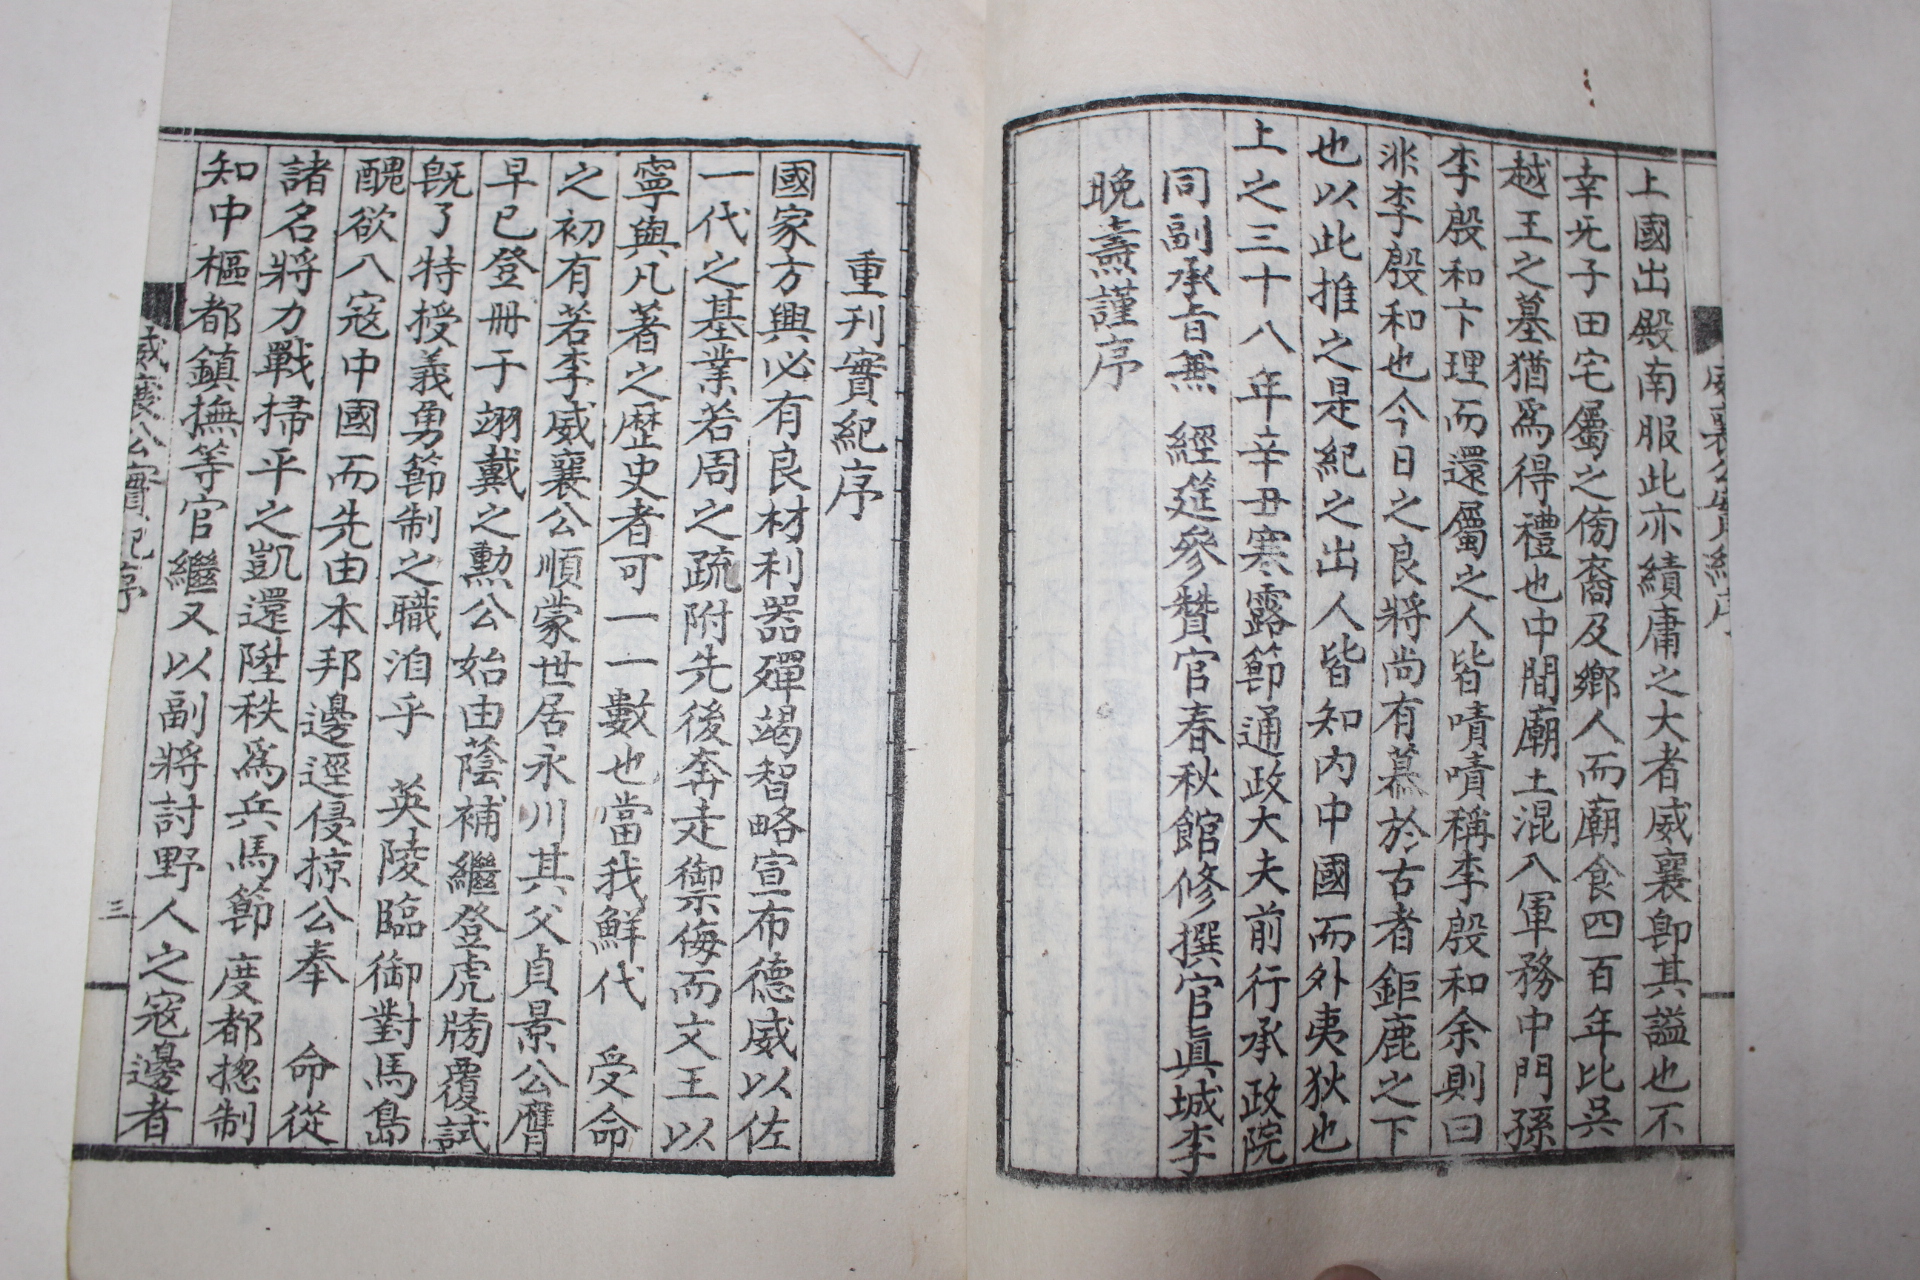 威襄公實紀序
上國出殿南服此亦績庸之大者威襄卽其謚也不
幸旡子田宅屬之傍裔及鄕人而廟食四百年比吳
越王之墓猶爲得禮也中間廟土混入軍務中門孫
李殷和卞理而還屬之人皆嘖嘖稱李殷和余則曰
非李殷和也今日之良將尚有慕於古者鉅鹿之下
也以此推之是紀之出人皆知內中國而外夷狄也
上之三十八年辛丑寒露節通政大夫前行承政院
同副承旨兼 經筵參贊官春秋館修撰官眞城李
晩燾謹序
重刊實紀序
國家方興必有良材利器殫竭智略宣布德威以佐
一代之基業若周之疏附先後奔走御禦侮而文王以
寧與凡著之歷史者可一一數也當我鮮代 受命
之初有若李威襄公順蒙世居永川其父貞景公膺
早已登冊于翊戴之勲公始由蔭補繼登虎牓覆試
旣了特授義勇節制之職洎乎 英陵臨御對馬島
醜欲入寇中國而先由本邦邊逕侵掠公奉 命從
諸名將力戰掃平之凱還陞秩爲兵馬節度都摠制
知中樞都鎭撫等官繼又以副將討野人之寇邊者
威襄公實紀序
三